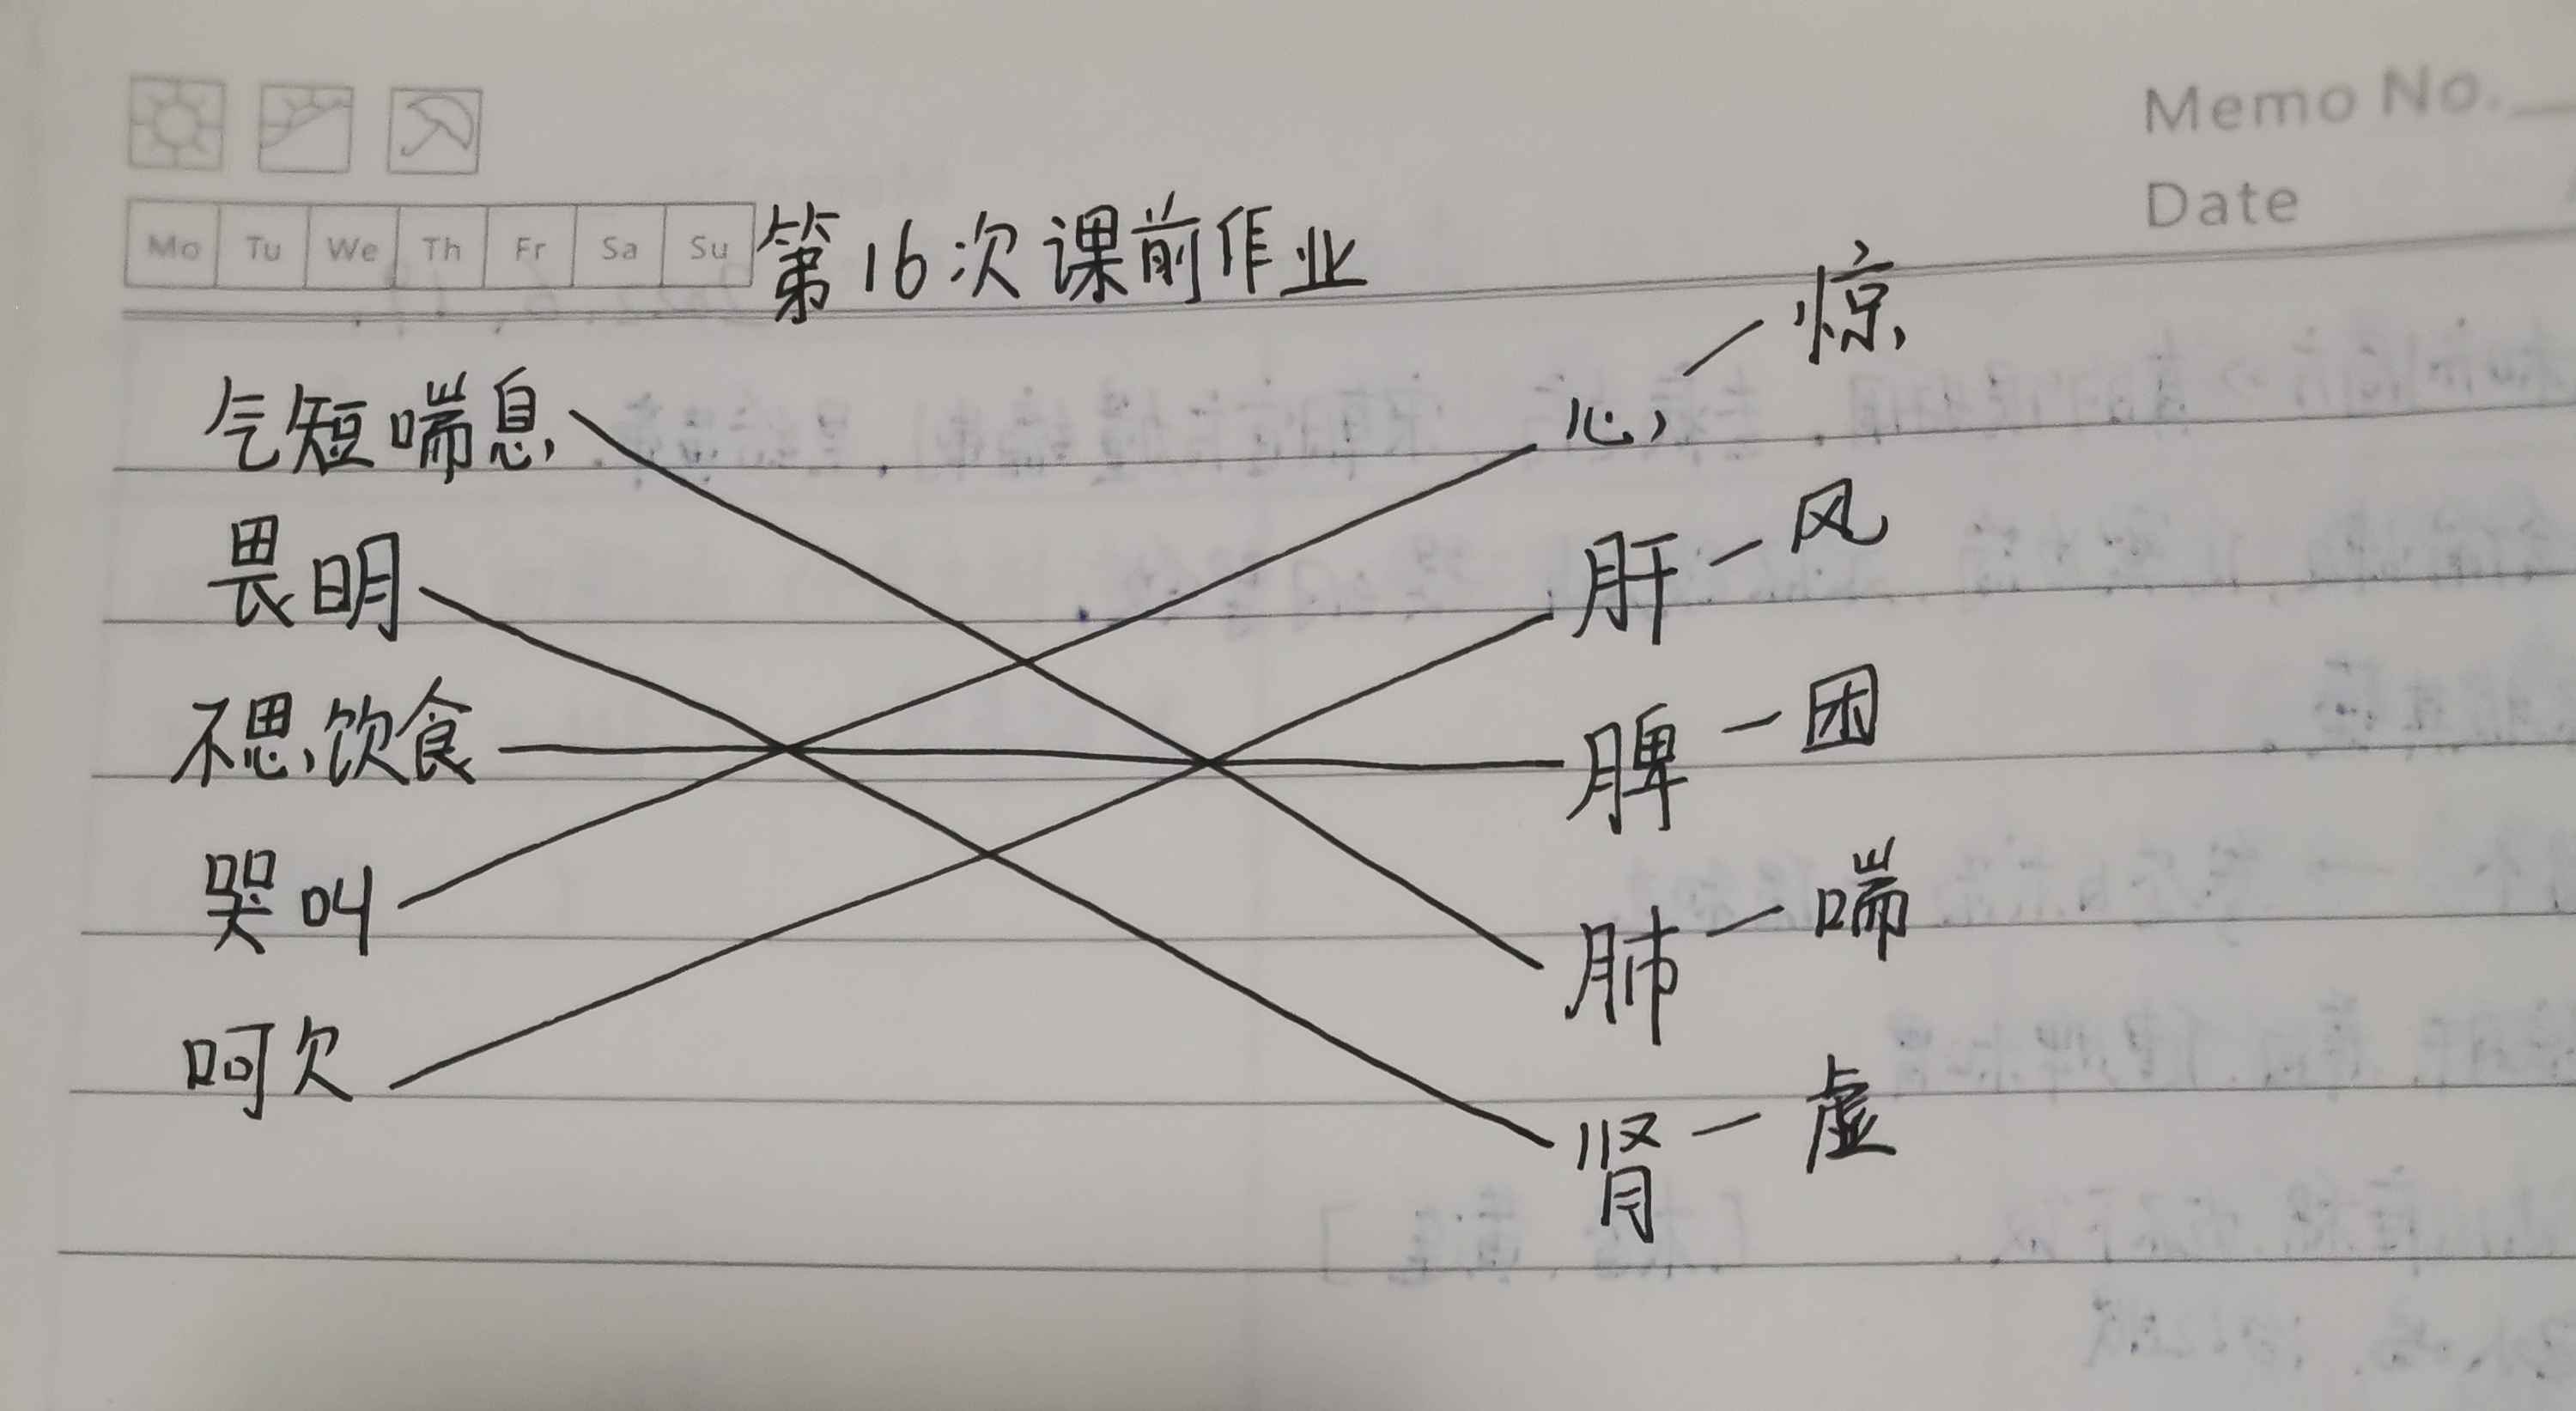 Memo No.
Date
Mo Tu We Th Fr Sa Su
第16次课前作业
气短喘息 心 — 惊
畏明 肝 — 风
不思饮食 脾 — 困
哭叫 肺 — 喘
呵欠 肾 — 虚